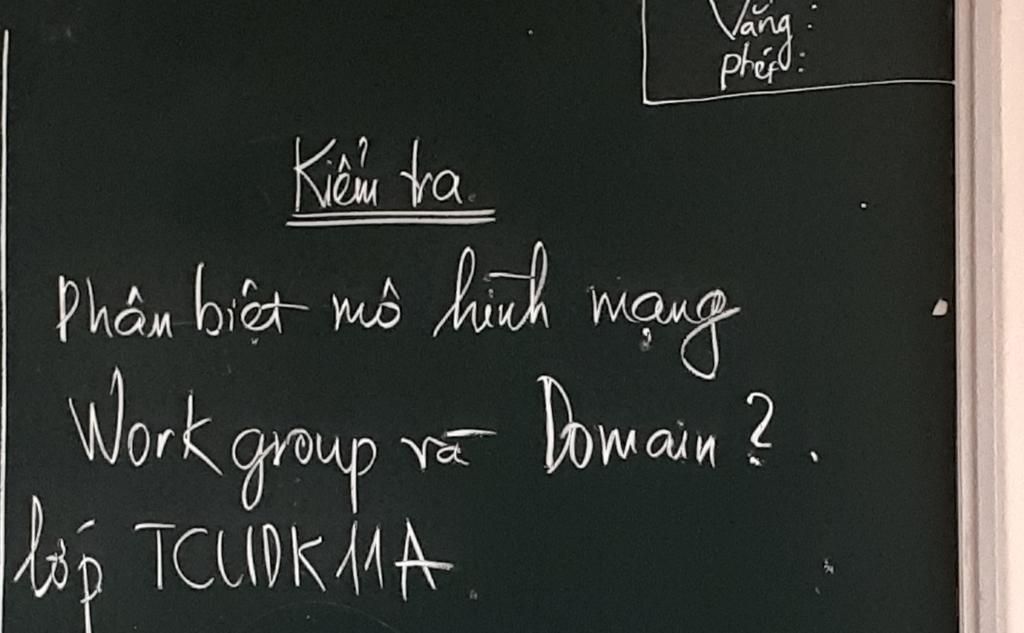 Vắng:
phép:
Kiểm tra
Phân biệt mô hình mạng
Workgroup và Domain?
lớp TCUDK11A